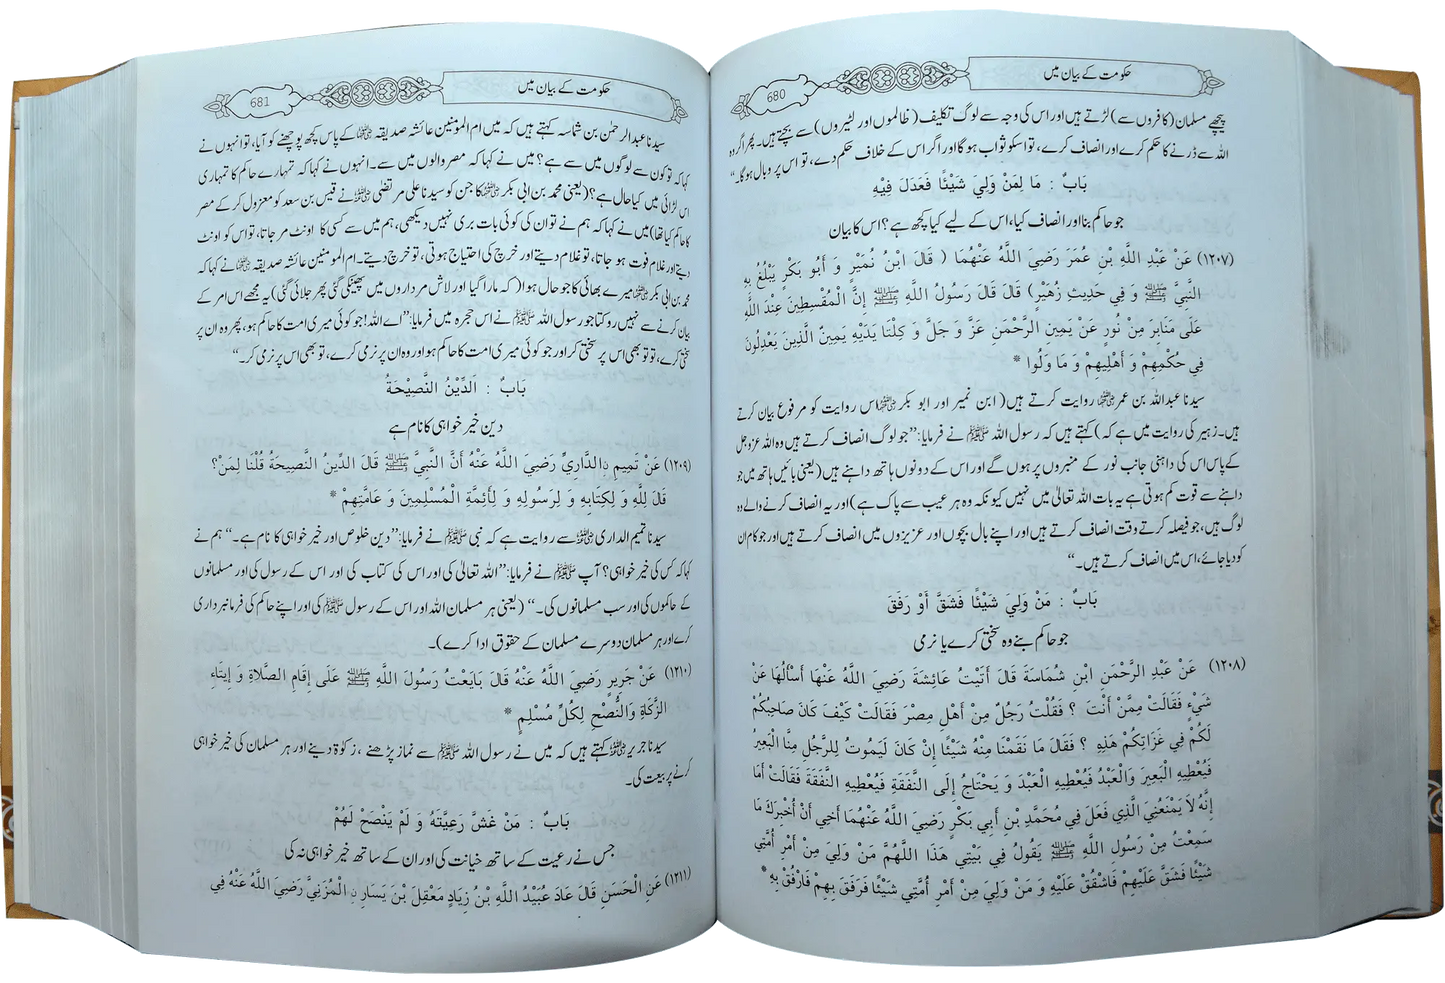 حکومت کے بیان میں
680
پیچھے مسلمان (کافروں سے) لڑتے ہیں اور اس کی وجہ سے لوگ تکلیف (ظالموں اور لٹیروں) سے بچتے ہیں۔ پھر اگر وہ
اللہ سے ڈرنے کا حکم کرے اور انصاف کرے، تو اسکو ثواب ہو گا اور اگر اس کے خلاف حکم دے، تو اس پر وبال ہو گا۔“
بَابٌ : مَا لِمَنْ وَلِيَ شَيْئًا فَعَدَلَ فِيْهِ
جو حاکم بنا اور انصاف کیا، اس کے لیے کیا کچھ ہے؟ اس کا بیان
(۱۲۰۷) عَنْ عَبْدِ اللَّهِ بْنِ عُمَرَ رَضِيَ اللَّهُ عَنْهُمَا ( قَالَ ابْنُ نُمَيْرٍ وَ أَبُو بَكْرٍ يَبْلُغُ بِهِ
النَّبِيَّ ﷺ وَ فِي حَدِيثِ زُهَيْرٍ) قَالَ قَالَ رَسُولُ اللَّهِ ﷺ إِنَّ الْمُقْسِطِينَ عِنْدَ اللَّهِ
عَلَى مَنَابِرَ مِنْ نُورٍ عَنْ يَمِينِ الرَّحْمَنِ عَزَّ وَ جَلَّ وَ كِلْتَا يَدَيْهِ يَمِينٌ الَّذِينَ يَعْدِلُونَ
فِي حُكْمِهِمْ وَ أَهْلِيهِمْ وَ مَا وَلُوا *
سیدنا عبداللہ بن عمر ؓ روایت کرتے ہیں (ابن نمیر اور ابو بکر ؓ اس روایت کو مرفوع بیان کرتے
ہیں۔ زہیر کی روایت میں ہے کہ) کہتے ہیں کہ رسول اللہ ﷺ نے فرمایا: ”جو لوگ انصاف کرتے ہیں وہ اللہ عزوجل
کے پاس اس کی داہنی جانب نور کے منبروں پر ہوں گے اور اس کے دونوں ہاتھ داہنے ہیں (یعنی بائیں ہاتھ میں جو
داہنے سے قوت کم ہوتی ہے یہ بات اللہ تعالیٰ میں نہیں کیونکہ وہ ہر عیب سے پاک ہے) اور یہ انصاف کرنے والے وہ
لوگ ہیں، جو فیصلہ کرتے وقت انصاف کرتے ہیں اور اپنے بال بچوں اور عزیزوں میں انصاف کرتے ہیں اور جو کام ان
کو دیا جائے، اس میں انصاف کرتے ہیں۔“
بَابٌ : مَنْ وَلِيَ شَيْئًا فَشَقَّ أَوْ رَفَقَ
جو حاکم بنے وہ سختی کرے یا نرمی
(۱۲۰۸) عَنْ عَبْدِ الرَّحْمَنِ ابْنِ شُمَاسَةَ قَالَ أَتَيْتُ عَائِشَةَ رَضِيَ اللَّهُ عَنْهَا أَسْأَلُهَا عَنْ
شَيْءٍ فَقَالَتْ مِمَّنْ أَنْتَ ؟ فَقُلْتُ رَجُلٌ مِنْ أَهْلِ مِصْرَ فَقَالَتْ كَيْفَ كَانَ صَاحِبُكُمْ
لَكُمْ فِي غَزَاتِكُمْ هَذِهِ ؟ فَقَالَ مَا نَقَمْنَا مِنْهُ شَيْئًا إِنْ كَانَ لَيَمُوتُ لِلرَّجُلِ مِنَّا الْبَعِيرُ
فَيُعْطِيهِ الْبَعِيرَ وَالْعَبْدُ فَيُعْطِيهِ الْعَبْدَ وَ يَحْتَاجُ إِلَى النَّفَقَةِ فَيُعْطِيهِ النَّفَقَةَ فَقَالَتْ أَمَا
إِنَّهُ لَا يَمْنَعُنِي الَّذِي فَعَلَ فِي مُحَمَّدِ بْنِ أَبِي بَكْرٍ رَضِيَ اللَّهُ عَنْهُمَا أَخِي أَنْ أُخْبِرَكَ مَا
سَمِعْتُ مِنْ رَسُولِ اللَّهِ ﷺ يَقُولُ فِي بَيْتِي هَذَا اللَّهُمَّ مَنْ وَلِيَ مِنْ أَمْرِ أُمَّتِي
شَيْئًا فَشَقَّ عَلَيْهِمْ فَاشْقُقْ عَلَيْهِ وَ مَنْ وَلِيَ مِنْ أَمْرِ أُمَّتِي شَيْئًا فَرَفَقَ بِهِمْ فَارْفُقْ بِهِ *
حکومت کے بیان میں
681
سیدنا عبدالرحمٰن بن شماسہ کہتے ہیں کہ میں ام المومنین عائشہ صدیقہ ؓ کے پاس کچھ پوچھنے کو آیا، تو انہوں نے
کہا کہ تو کون سے لوگوں میں سے ہے؟ میں نے کہا کہ مصر والوں میں سے۔ انہوں نے کہا کہ تمہارے حاکم کا تمہاری
اس لڑائی میں کیا حال ہے؟ (یعنی محمد بن ابی بکر ؓ کا جن کو سیدنا علی مرتضیٰ ؓ نے قیس بن سعد کو معزول کر کے مصر
کا حاکم کیا تھا) میں نے کہا کہ ہم نے تو ان کی کوئی بات بری نہیں دیکھی، ہم میں سے کسی کا اونٹ مر جاتا، تو اس کو اونٹ
دیتے اور غلام فوت ہو جاتا، تو غلام دیتے اور خرچ کی احتیاج ہوتی، تو خرچ دیتے۔ ام المومنین عائشہ صدیقہ ؓ نے کہا کہ
محمد بن ابی بکر ؓ میرے بھائی کا جو حال ہوا (کہ مارا گیا اور لاش مرداروں میں پھینکی گئی پھر جلائی گئی) یہ مجھے اس امر کے
بیان کرنے سے نہیں روکتا جو رسول اللہ ﷺ نے اس حجرہ میں فرمایا: ”اے اللہ! جو کوئی میری امت کا حاکم ہو، پھر وہ ان پر
سختی کرے، تو تو بھی اس پر سختی کر اور جو کوئی میری امت کا حاکم ہو اور وہ ان پر نرمی کرے، تو بھی اس پر نرمی کر۔“
بَابٌ : اَلدِّيْنُ النَّصِيْحَةُ
دین خیر خواہی کا نام ہے
(۱۲۰۹) عَنْ تَمِيمِ نِ الدَّارِيِّ رَضِيَ اللَّهُ عَنْهُ أَنَّ النَّبِيَّ ﷺ قَالَ الدِّينُ النَّصِيحَةُ قُلْنَا لِمَنْ؟
قَالَ لِلَّهِ وَ لِكِتَابِهِ وَ لِرَسُولِهِ وَ لِأَئِمَّةِ الْمُسْلِمِينَ وَ عَامَّتِهِمْ *
سیدنا تمیم الداری ؓ سے روایت ہے کہ نبی ﷺ نے فرمایا: ”دین خلوص اور خیر خواہی کا نام ہے۔“ ہم نے
کہا کہ کس کی خیر خواہی؟ آپ ﷺ نے فرمایا: ”اللہ تعالیٰ کی اور اس کی کتاب کی اور اس کے رسول کی اور مسلمانوں
کے حاکموں کی اور سب مسلمانوں کی۔“ (یعنی ہر مسلمان اللہ اور اس کے رسول ﷺ کی اور اپنے حاکم کی فرمانبرداری
کرے اور ہر مسلمان دوسرے مسلمان کے حقوق ادا کرے)۔
(۱۲۱۰) عَنْ جَرِيرٍ رَضِيَ اللَّهُ عَنْهُ قَالَ بَايَعْتُ رَسُولَ اللَّهِ ﷺ عَلَى إِقَامِ الصَّلَاةِ وَ إِيتَاءِ
الزَّكَاةِ وَالنُّصْحِ لِكُلِّ مُسْلِمٍ *
سیدنا جریر ؓ کہتے ہیں کہ میں نے رسول اللہ ﷺ سے نماز پڑھنے ، زکوٰۃ دینے اور ہر مسلمان کی خیر خواہی
کرنے پر بیعت کی۔
بَابٌ : مَنْ غَشَّ رَعِيَّتَهُ وَ لَمْ يَنْصَحْ لَهُمْ
جس نے رعیت کے ساتھ خیانت کی اور ان کے ساتھ خیر خواہی نہ کی
(۱۲۱۱) عَنِ الْحَسَنِ قَالَ عَادَ عُبَيْدُ اللَّهِ بْنُ زِيَادٍ مَعْقِلَ بْنَ يَسَارِ نِ الْمُزَنِيَّ رَضِيَ اللَّهُ عَنْهُ فِي